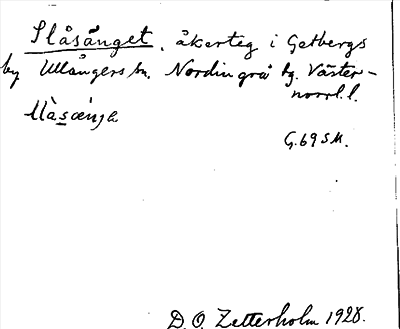 Slåsänget, åkerteg i Getbergs
by Ullångers sn. Nordingrå tg. Väster-
norrl. l.
G. 69 S M.
D. O. Zetterholm 1928.